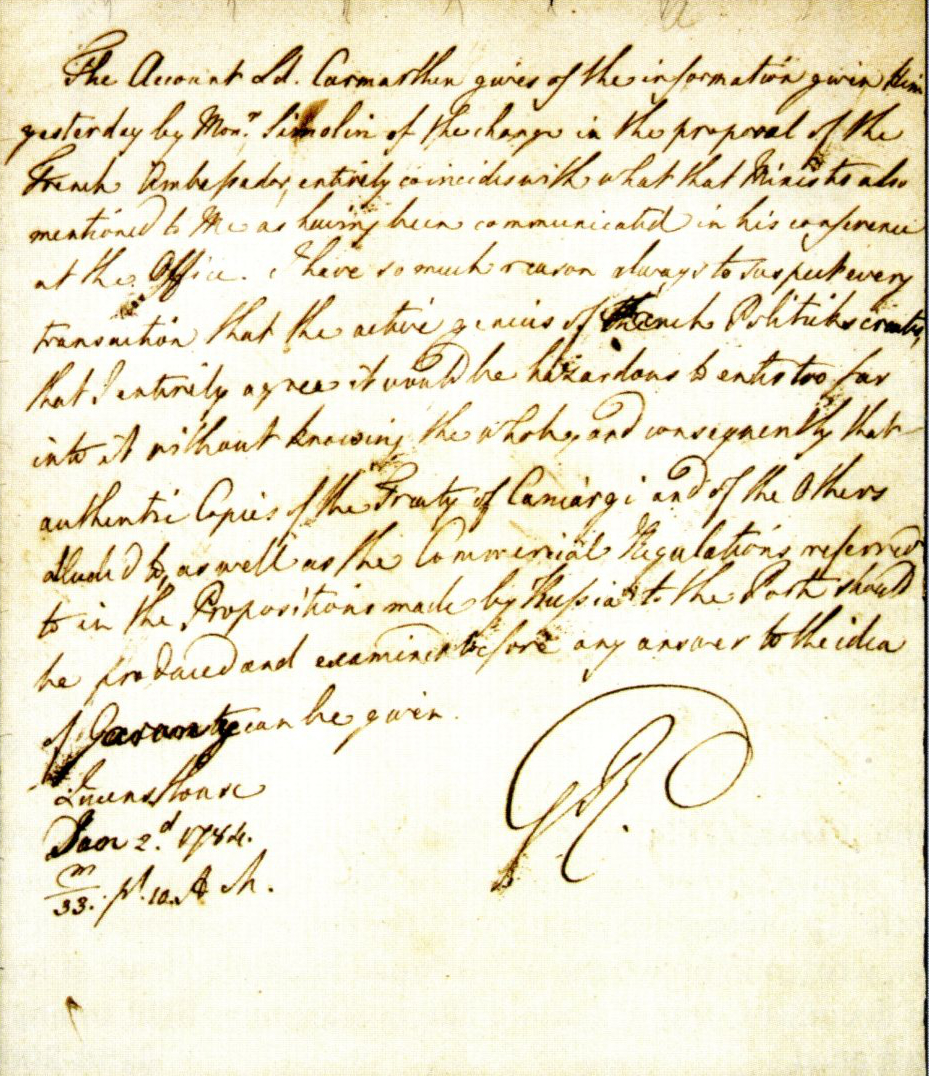 The Account Ld. Carmarthen gives of the information given Him
yesterday by Monr. Simolin of the change in the proposal of the
French Ambassador, entirely coincides with what that Minister also
mentioned to Me as having been communicated in his conference
at the Office. I have so much reason always to suspect every
transaction that the active genius of French Politicks creates,
that I entirely agree it would be hazardous to enter too far
into it without knowing the whole, and consequently that
authentic Copies of the Treaty of Caniargi and of the Others
alluded to, as well as the Commercial Regulations referred
to in the Propositions made by Russia to the Porte should
be produced and examined before any answer to the idea
of Garanty can be given.
Queens House
Jan 2d. 1784.
m/33. pt. 10. A M.
GR.